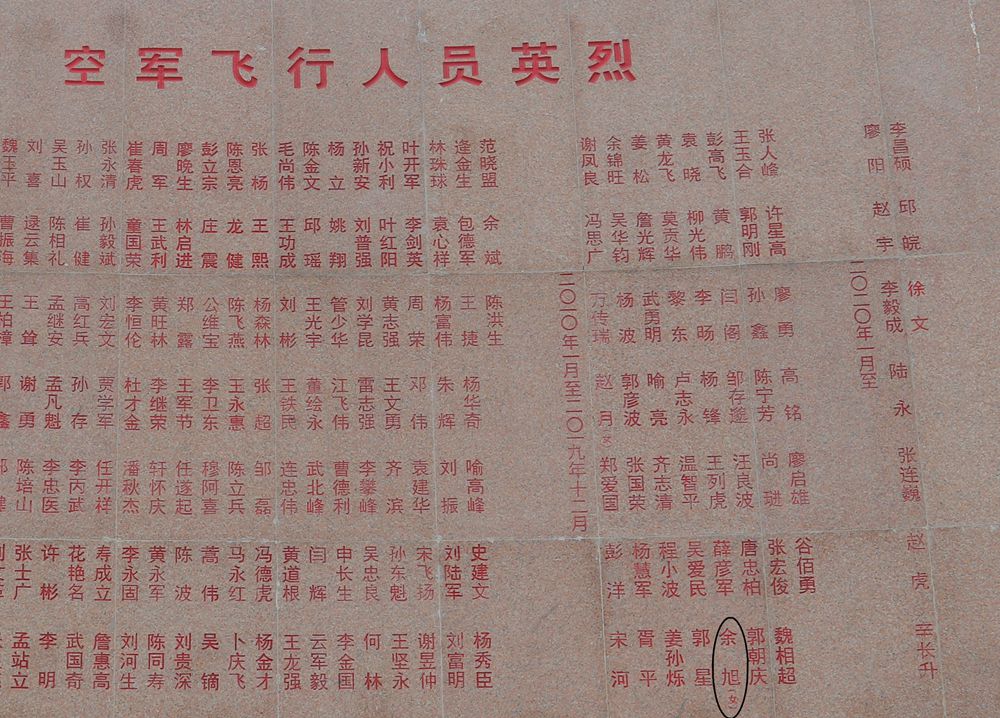 空军飞行人员英烈
魏玉平 曹振海 王柏樟 郭鑫
刘喜 逯云集 王耸 谢勇 陈培山 张士广 孟站立
吴玉山 陈相礼 孟继安 孟凡魁 李忠医 许彬 李明
孙权 崔健 高红兵 孙存 李丙武 花艳名 武国奇
张永清 孙毅斌 刘宏文 贾学军 任开祥 寿成立 詹惠高
崔春虎 童国荣 李恒伦 杜才金 潘秋杰 李永固 刘河生
周军 王武利 黄旺林 李继荣 轩怀庆 黄永军 陈同寿
廖晚生 林启进 郑露 王军节 任遂起 陈波 刘贵深
彭立宗 庄震 公维宝 李卫东 穆阿喜 蒿伟 吴镝
陈恩亮 龙健 陈飞燕 王永惠 陈立兵 马永红 卜庆飞
张杨 王熙 杨森林 张超 邹磊 冯德虎 杨金才
毛尚伟 王功成 刘彬 王铁民 连忠伟 黄道根 王龙强
陈金文 邱瑶 王光宇 董绘永 武北峰 闫辉 云军毅
杨立 姚翔 管少华 江飞伟 曹德利 申长生 李金国
孙新安 刘普强 刘学昆 雷志强 李攀峰 吴忠良 何林
祝小利 叶红阳 黄志强 王文勇 齐滨 孙东魁 王坚永
叶开军 李剑英 周荣 邓伟 袁建华 宋飞扬 谢昱仲
林珠球 袁心祥 杨富伟 朱辉 刘振 刘陆军 刘富明
逄金生 包德军 王捷 杨华奇 喻高峰 史建文 杨秀臣
范晓盟 余斌 陈洪生
二〇一〇年一月至二〇一九年十二月
谢凤良 冯思广 万传瑞 赵月(女) 郑爱国 彭洋 宋河
余锦旺 吴华钧 杨波 郭彦波 张国荣 杨慧军 胥平
姜松 詹光辉 武勇明 喻亮 齐志清 程小波 姜孙烁
黄龙飞 莫贡华 黎东 卢志永 温智平 吴爱民 郭星
袁晓 柳光伟 李旸 杨锋 王列虎 薛彦军 余旭(女)
彭高飞 黄鹏 闫阁 邹存 汪良波 唐忠柏 郭朝庆
王玉合 郭明刚 孙鑫 陈宁芳 尚 张宏俊 魏相超
张人峰 许星高 廖勇 高铭 廖启雄 谷佰勇
二〇二〇年一月至
廖阳 赵宇 李毅成 陆永 张连巍 赵虎 辛长升
李昌硕 邱皖 徐文